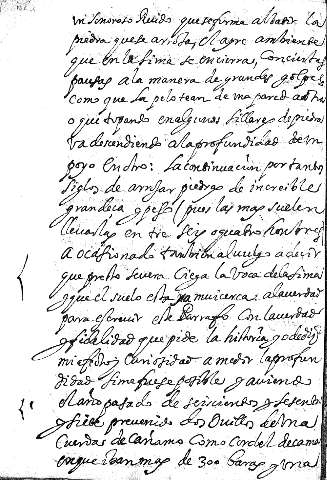 un sonoroso Ruido que se firma al dar la
piedra que se arroja, el ayre ambiente
que en la sima se encierra, con ciertas
pausas a la manera de grandes golpes
como que la pelotean de una pared a otra
o que topando en algunos sillares de piedra
va descendiendo a la profundidad de un
poço en otro: La continuacion, por tantos
siglos de arrojar piedras de increibles
grandeça y peso (pues las mas suelen
llevarlas entre seis o quatro hombres
a ocasionado tambien al vulgo a decir
que presto severa Ciega la voca de la sima
y que el suelo esta ya mui cerca: a la verdad
para escrevir este Parrafo con la verdad
y fidelidad que pide la historia y
mi afecto y Curiosidad a medir la profun
didad si me fuese posible y aviendo
el año pasado de seiscientos y sesenta
y siete prevenido dos ovillos de una
Cuerdas de Cañamo Como Cordel de
en que ivan mas de 300 baras y una